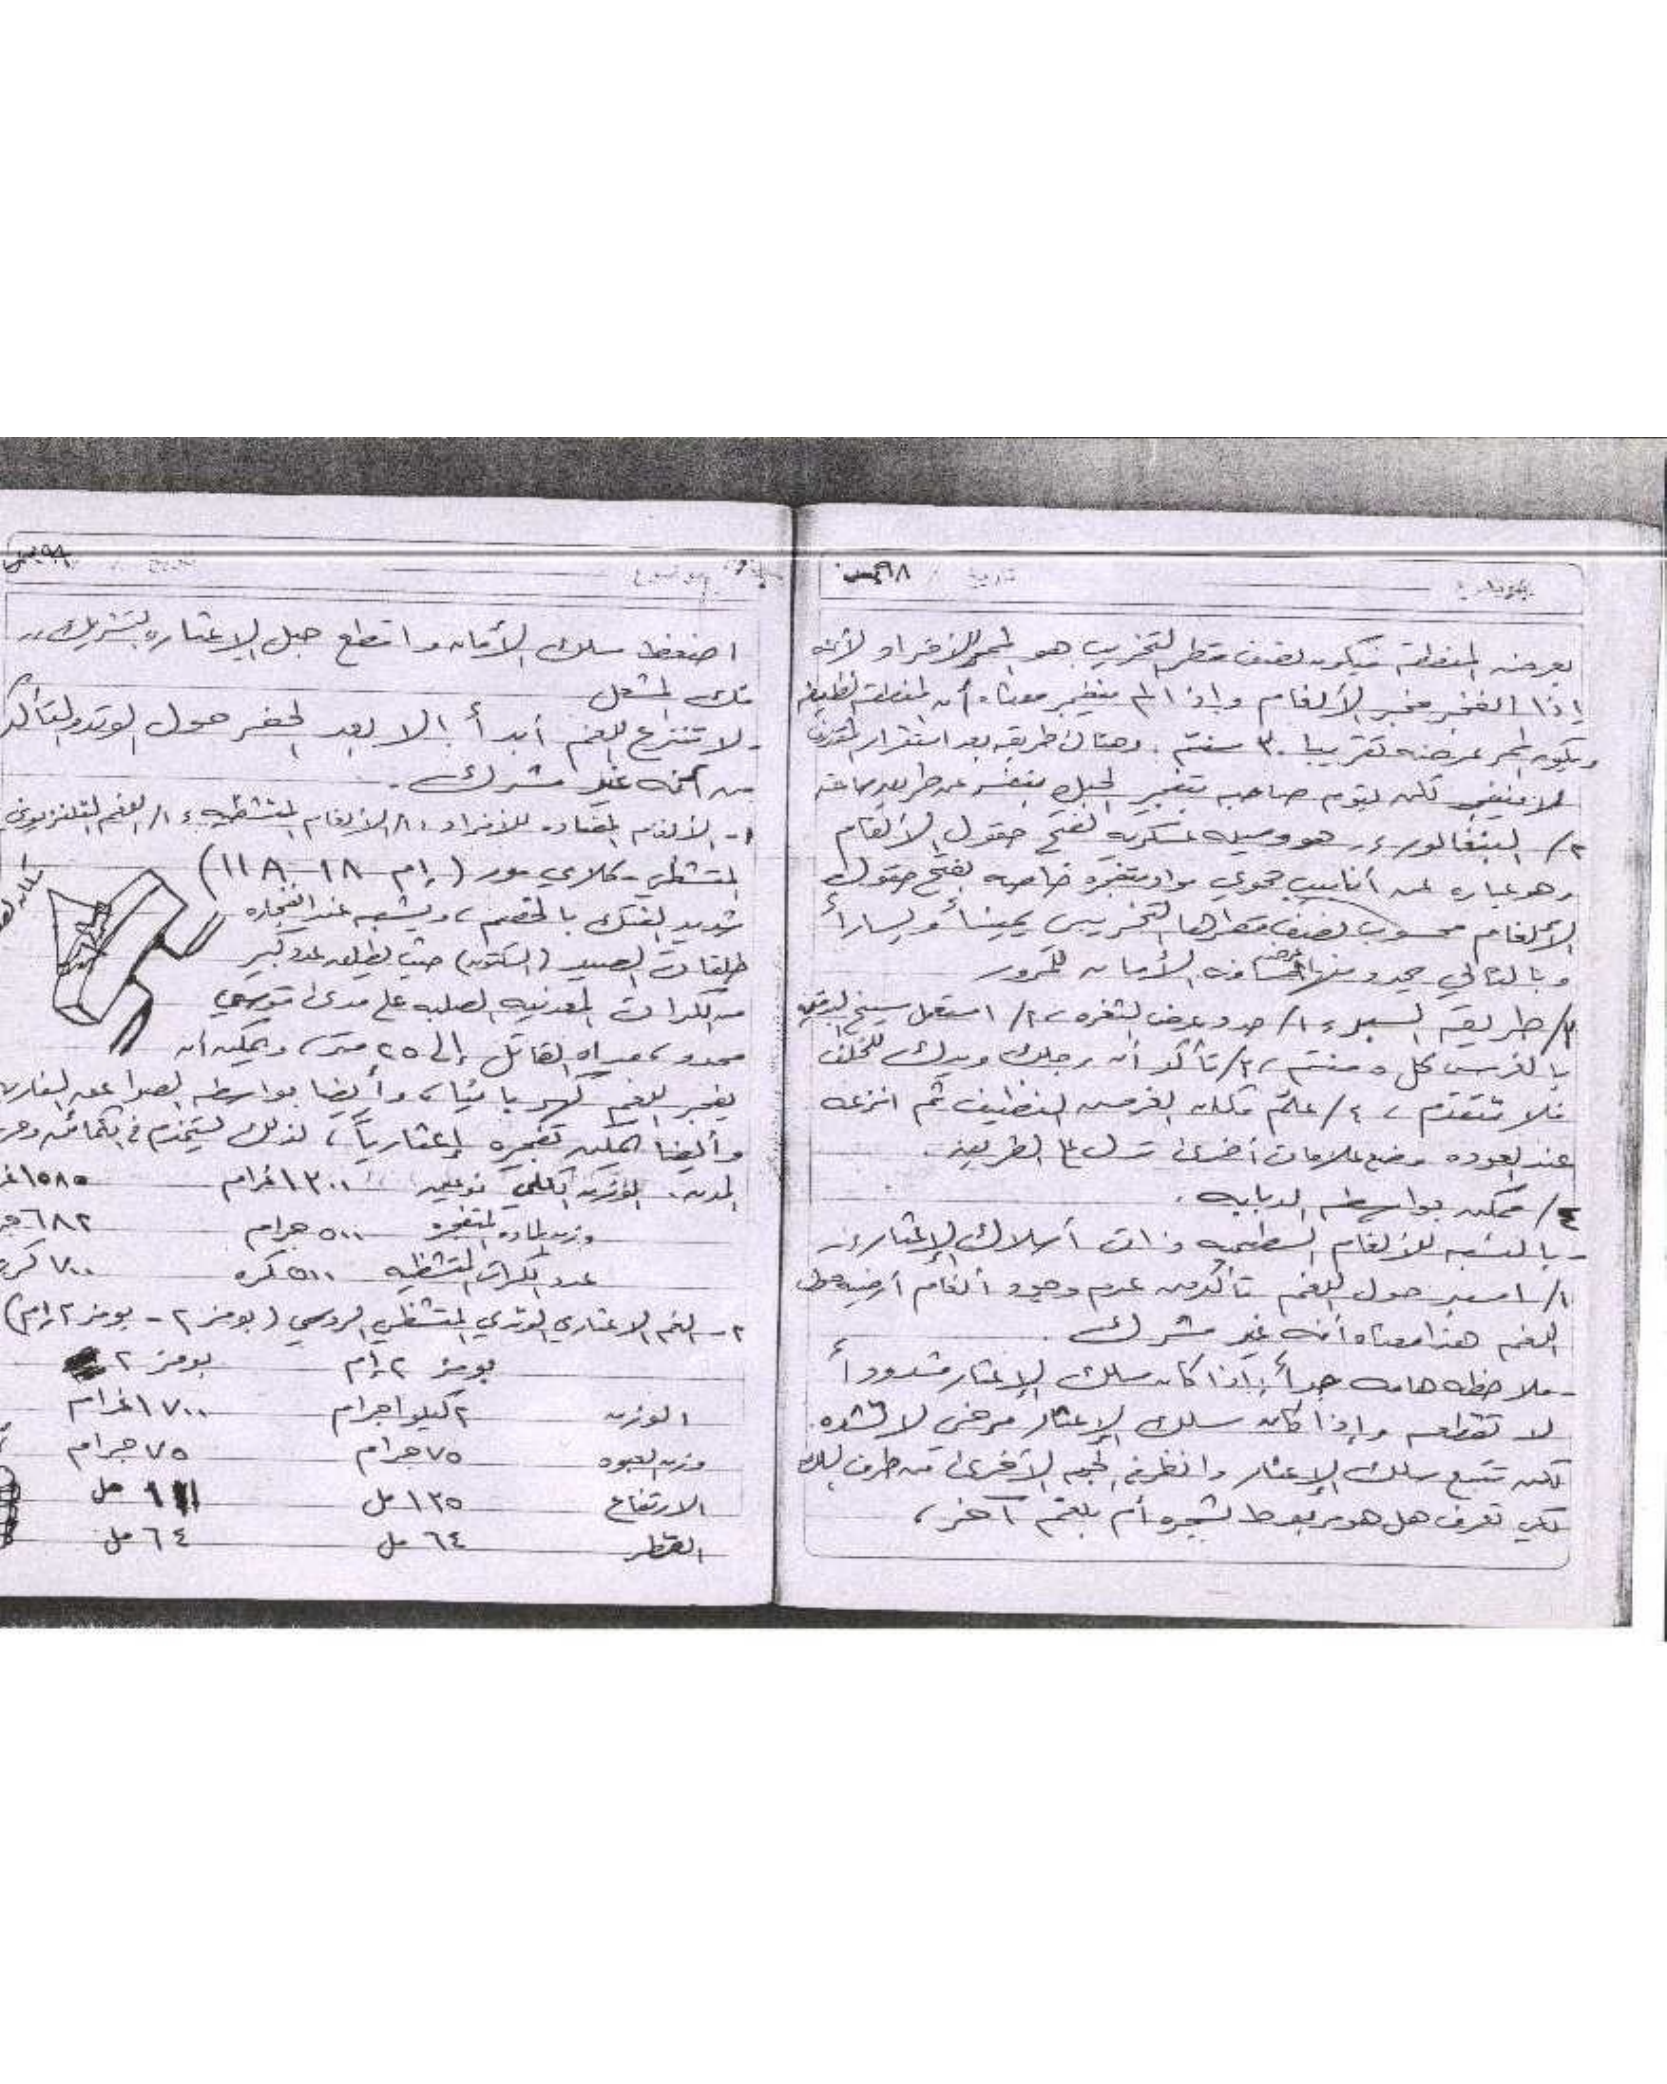 بعرض المنطقة فيكون نصف قطر التخريب هو الممر للأفراد لأنه
إذا انفجر فجر الألغام وإذا لم ينفجر معناه أن المنطقة نظيفة
ويكون الممر عرضه تقريبا ٣٠ سنتم . وهناك طريقة بعد استقرار
لا ينفجر لكن يقوم صاحبه بتفجير الحبل بنفسه عن طريق صاعق
٢/ البنغالور :ـ هو وسيله عسكريه لفتح حقول الألغام
وهو عباره عن أنابيب تحوي مواد متفجره خاصه بفتح حقول
الألغام محسوب نصف قطرها التخريبي يميناً ويساراً
وبالتالي يحدد منها مسافة الأمان للمرور
٣/ طريقة السبر : ١/ حدد عرض الثغره ، ٢/ استعمل سيخ
بالغرس كل ٥ سنتم ، ٣/ تأكد أن رجلك ويدك للخلف
فلا تتقدم ، ٤/ علّم مكان الغرس النظيف ثم انزعه
عند العوده وضع علامات أخرى تدل على الطريق .
٤/ ممكن بواسطه الدبابه .
- بالنسبه للألغام السطحيه ذات أسلاك الإعثار :ـ
١/ اسبر حول اللغم تأكد من عدم وجود ألغام أرضيه حول
اللغم هذا معناه أنه غير مشرك .
- ملاحظه هامه جداً : إذا كان سلك الإعثار مشدوداً
لا تقطعه وإذا كان سلك الإعثار مرخى لا تشده .
لكن تتبع سلك الإعثار وانظر في الجهه الأخرى من طرف السلك
لكي تعرف هل هو مربوط بشجره أم بلغم آخر ،
اضغط سلك الأمان واقطع حبل الإعثاره
فك المشعل
- لا تنزع اللغم أبداً إلا بعد الحفر حول الوتد والتأكد
من أنه غير مشرك .
١- الألغام المضاده للأفراد : ٨/ الألغام المتشظيه : ١/ اللغم التلفزيوني
المتشظي - كلاي مور (إم ١٨ – ١٨ A١)
شديد الفتك بالخصم ، ويشبه عند انفجاره
طلقات الصيد (السكتون) حيث يطلق عدد كبير
من الكرات المعدنيه الصلبه على مدى قوسي
محدود ، مداه القاتل إلى ٢٥ متر ، ويمكن أن
يفجر اللغم كهربائياً ، وأيضا بواسطه الصواعق
وأيضا يمكن تفجيره إعثارياً ، لذلك يستخدم في الكمائن
المدن . الوزن الكلي نوعين ١٣٠٠ غرام ١٥٨٥
وزن الماده المتفجره ٥٠٠ جرام ٦٨٢
عدد الكرات المتشظيه ٥٠٠ كره ٧٠٠ كره
٢- اللغم الاعثاري الوتدي المتشظي الروسي (بومز ٢ - بومز ٢ إم)
بومز ٢ إم بومز ٢
الوزن ٢ كيلو اجرام ١٧٠٠ غرام
وزن العبوه ٧٥ جرام ٧٥ جرام
الارتفاع ١٣٥ مل مل
القطر ٦٤ مل ٦٤ مل